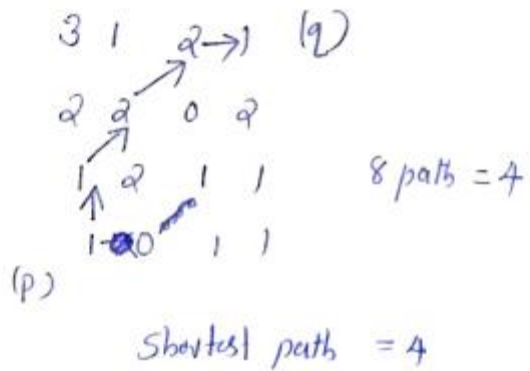 3 1 2 → 1 (q)
2 2 0 2
1 2 1 1 8 path = 4
1 0 1 1
(p)
Shortest path = 4